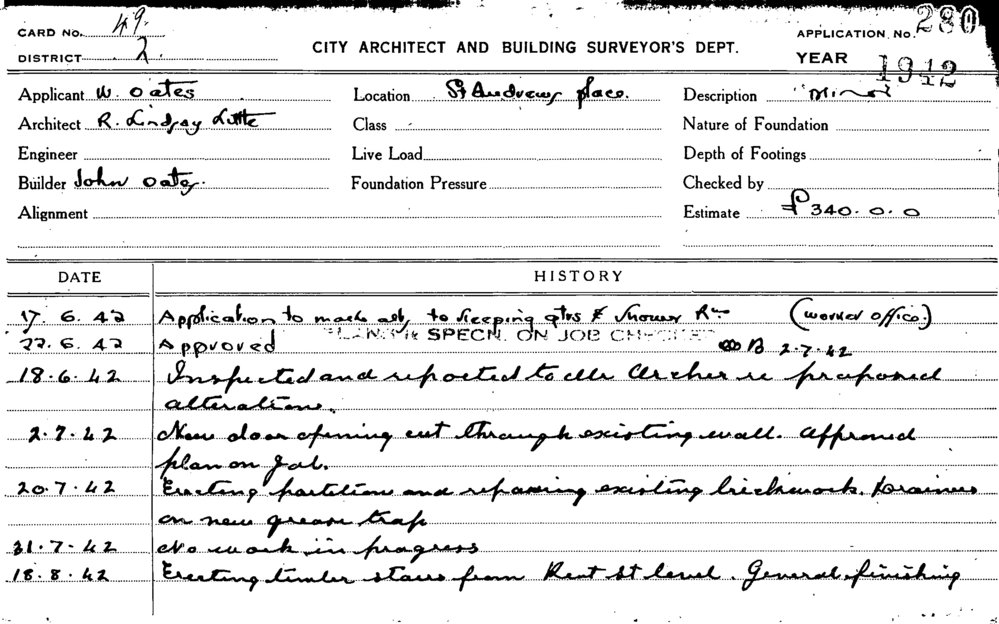 CARD No. 49.
APPLICATION No. 280
DISTRICT 2
CITY ARCHITECT AND BUILDING SURVEYOR'S DEPT.
YEAR 1942
Applicant W. Oates
Location St Andrews place.
Description Minor
Architect R. Lindsay Little
Class
Nature of Foundation
Engineer
Live Load
Depth of Footings
Builder John Oates.
Foundation Pressure
Checked by
Alignment
Estimate £340.0.0
DATE HISTORY
17.6.42 Application to make alts to sleeping qtrs & shower Rm
22.6.42 Approved SPECN. ON JOB 2.7.42
18.6.42 Inspected and reported to Mr Archer re proposed
alterations.
2.7.42 New door opening cut through existing wall. Approved
plan on Job.
20.7.42 Erecting partitions and repairing existing brickwork. Drainers
on new grease trap
31.7.42 No work in progress
18.8.42 Erecting timber stairs from St level. General finishing